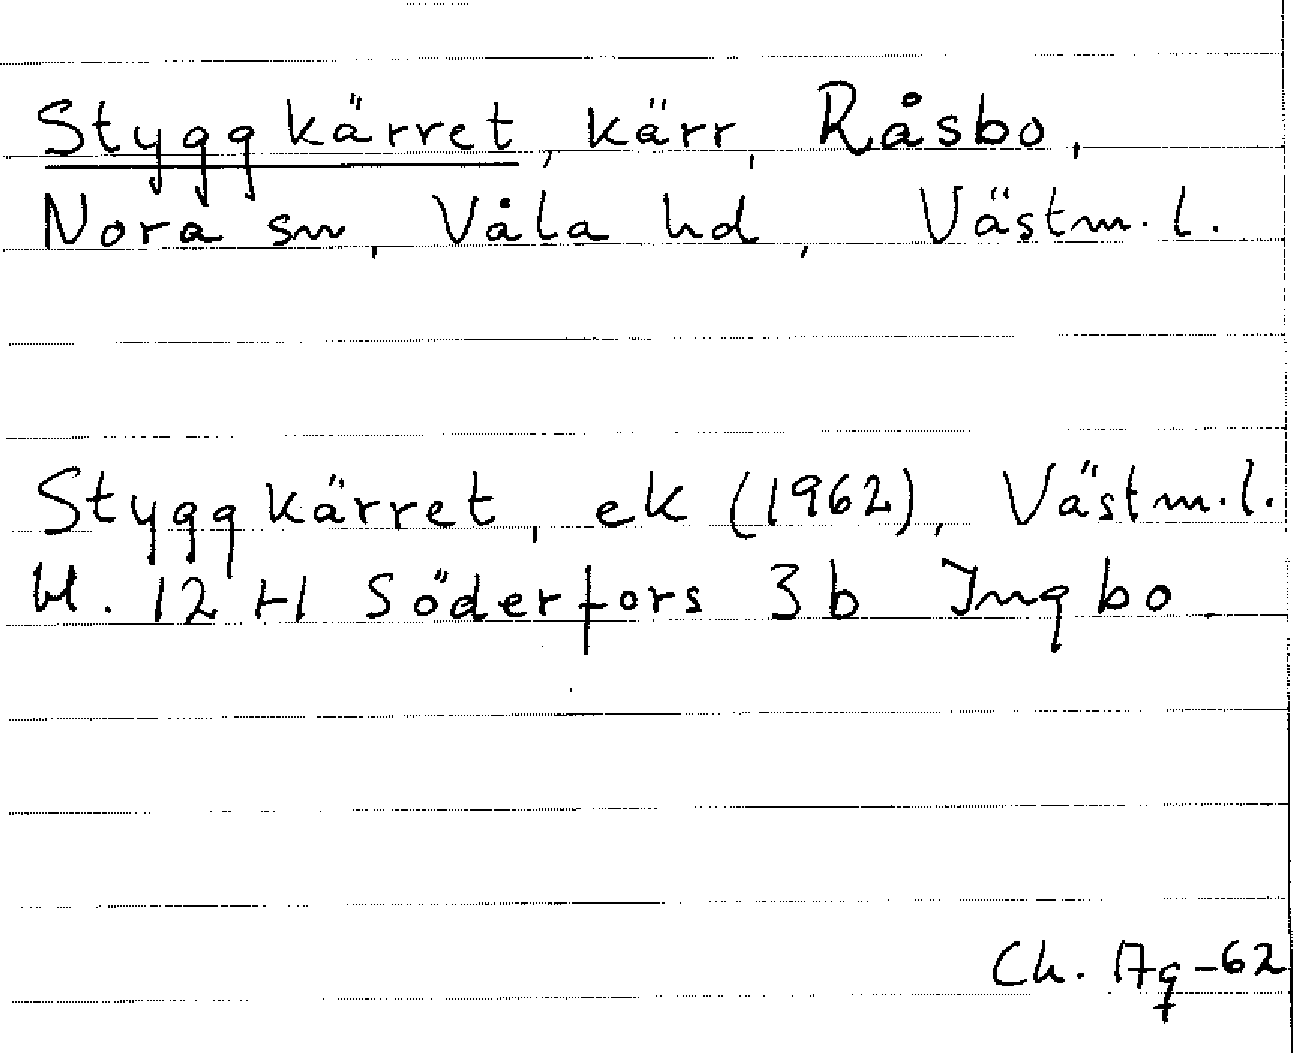 Styggkärret, kärr, Råsbo,
Nora sn, Våla hd, Västm. l.
Styggkärret, ek (1962), Västm. l.
bl. 12 H Söderfors 3 b Ingbo
Ch. Ag -62